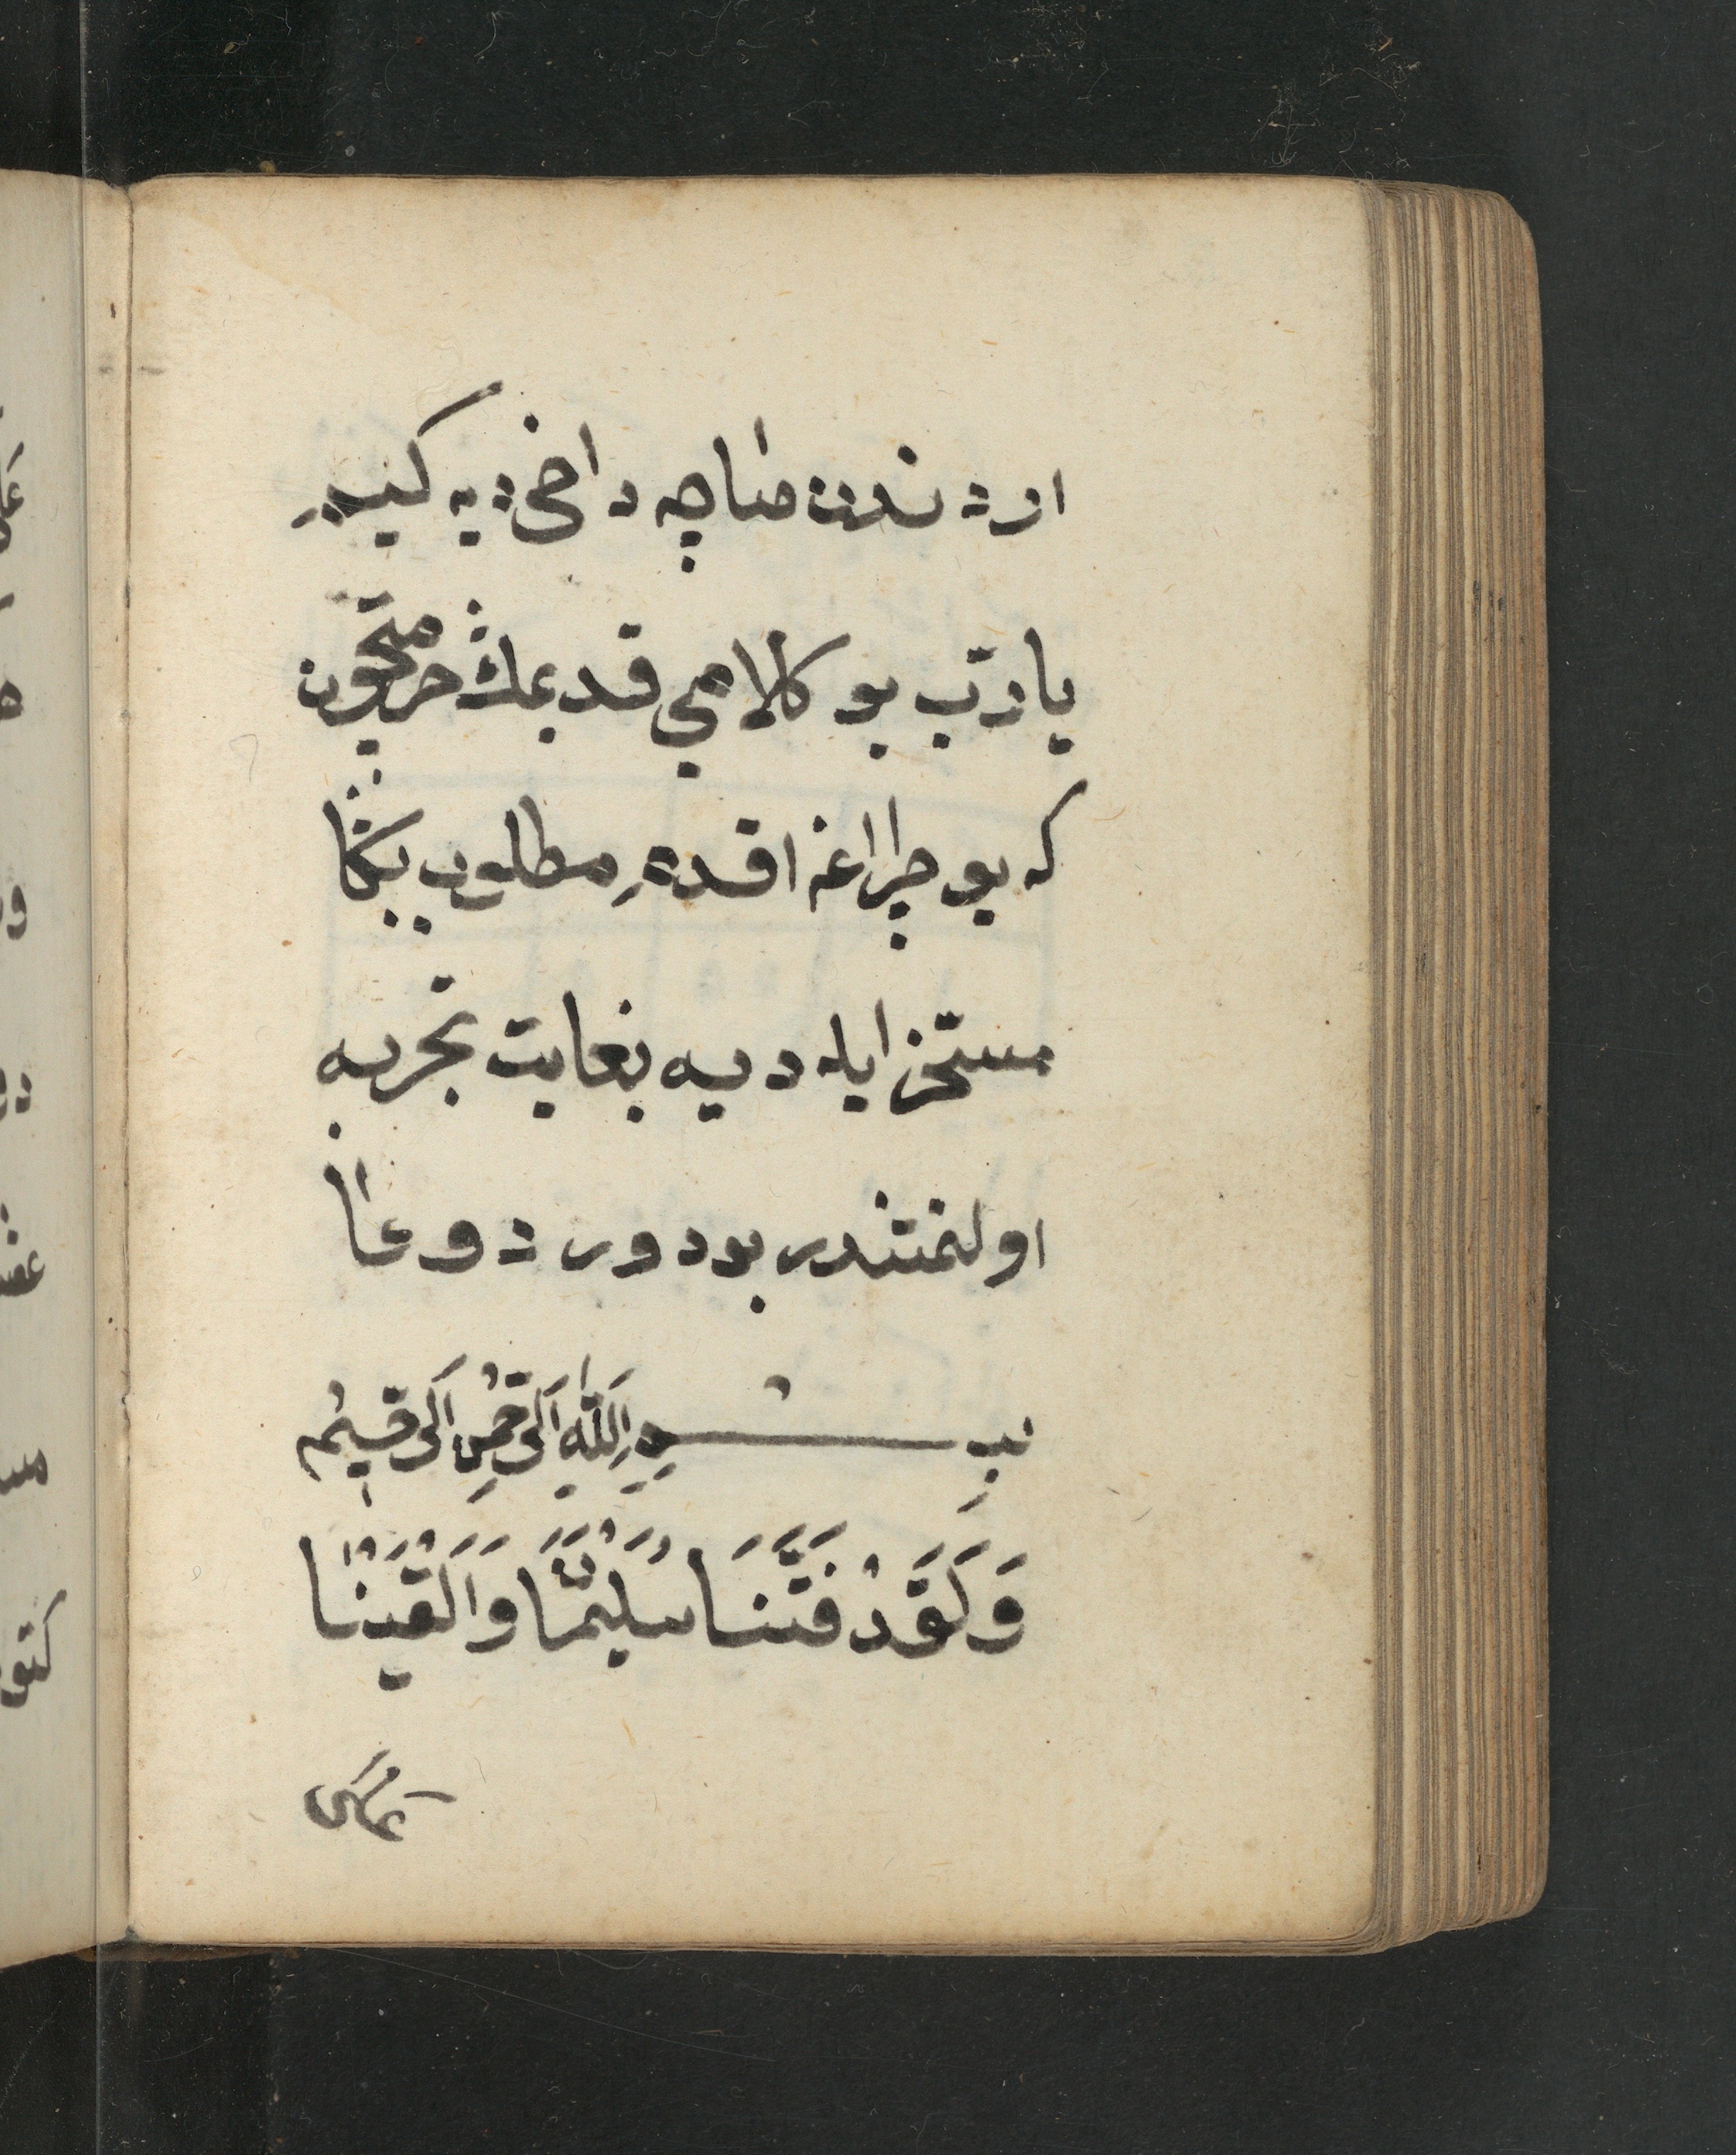 اردندن صاچه داخی دیه کیر
یا رب بو کلامی قدیمك حرمتیچون
که بو چراغه اقدم مطلوب بکا
مستخر ایله دیه بغایت تجربه
اولنمشدر بودور دوعا
بِسْمِ اللّٰهِ الرَّحْمٰنِ الرَّحِيْمِ
وَلَقَدْ فَتَنَّا سُلَيْمٰنَ وَاَلْقَيْنَا
عَلٰی